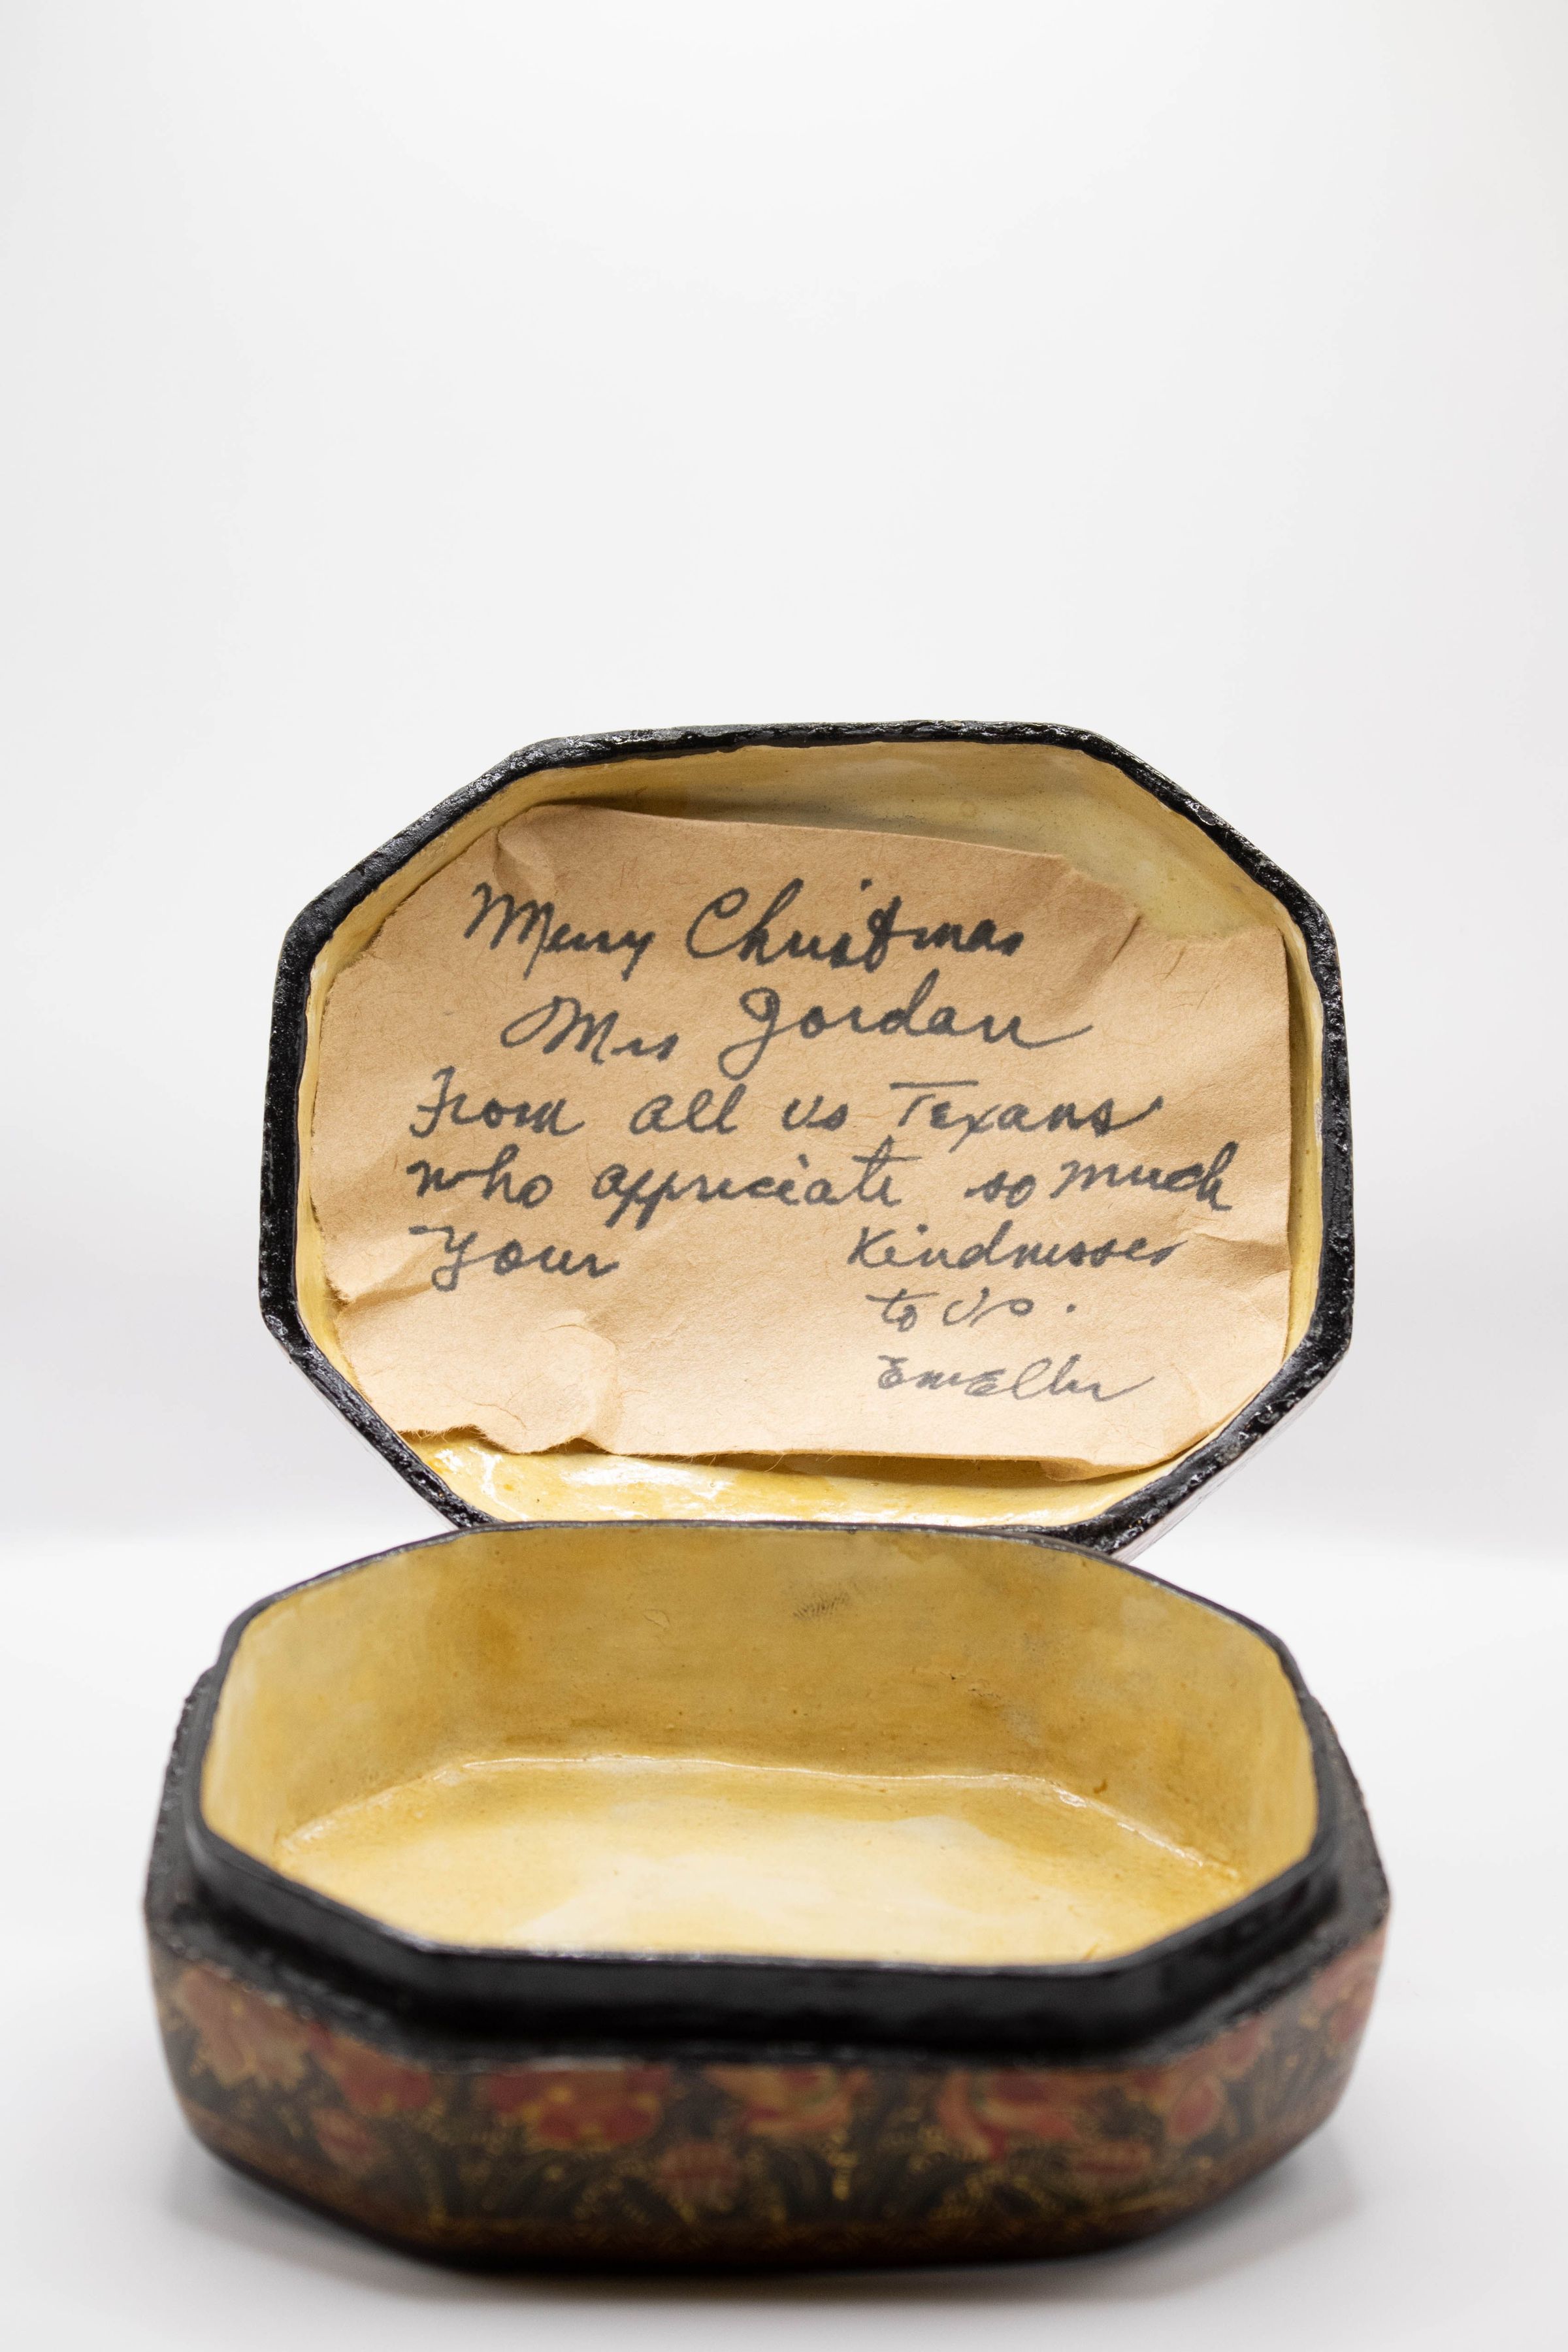 Merry Christmas
Mrs Jordan
From all us Texans
who appreciate so much
your Kindnesses
to us.